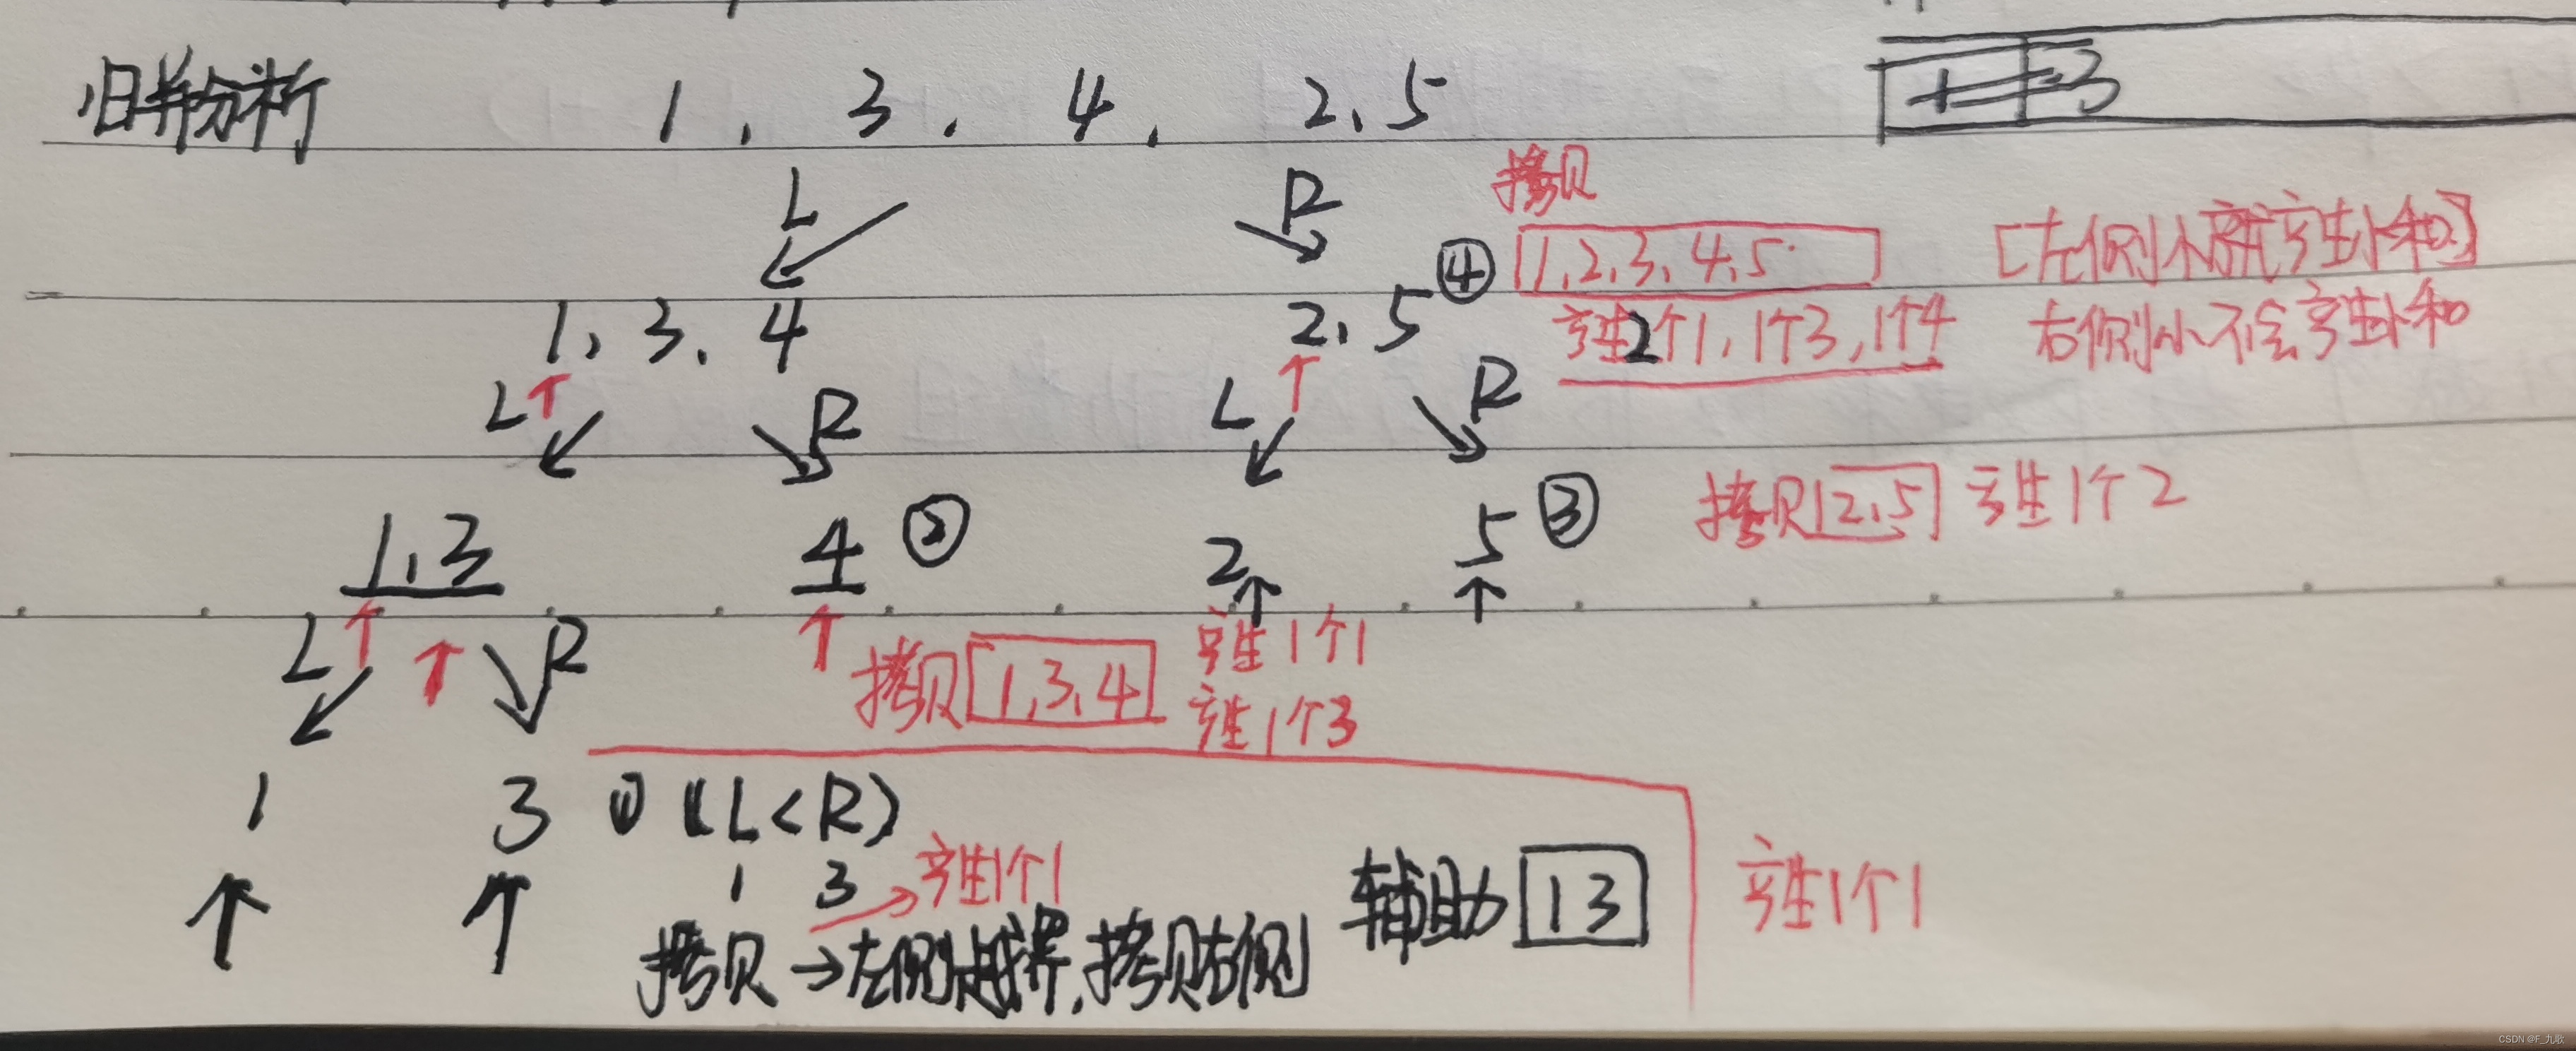 归并分析 1, 3, 4, 2,5
L R 拷贝
④ 1,2,3,4,5 [左侧小就产生小和]
1, 3, 4 2,5 产生2个1,1个3,1个4 右侧小不会产生小和
L R L R
1,3 4 ② 2 5 ③ 拷贝 2,5 产生1个2
L R 拷贝 1,3,4 产生1个1
产生1个3
1 3 ① (L<R)
1 3 → 产生1个1 辅助 1 3 产生1个1
拷贝 → 左侧越界,拷贝右侧
CSDN @F_九歌